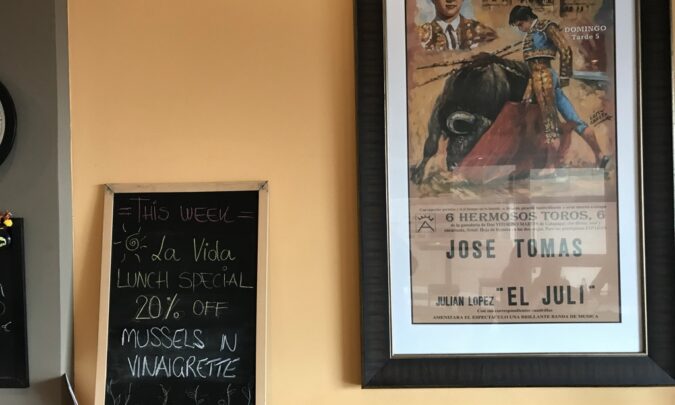 = THIS WEEK =
La Vida
LUNCH SPECIAL
20% OFF
MUSSELS IN
VINAIGRETTE
DOMINGO
Tarde 5
6 HERMOSOS TOROS, 6
JOSE TOMAS
JULIAN LOPEZ "EL JULI"
AMENIZARA EL ESPECTACULO UNA BRILLANTE BANDA DE MUSICA